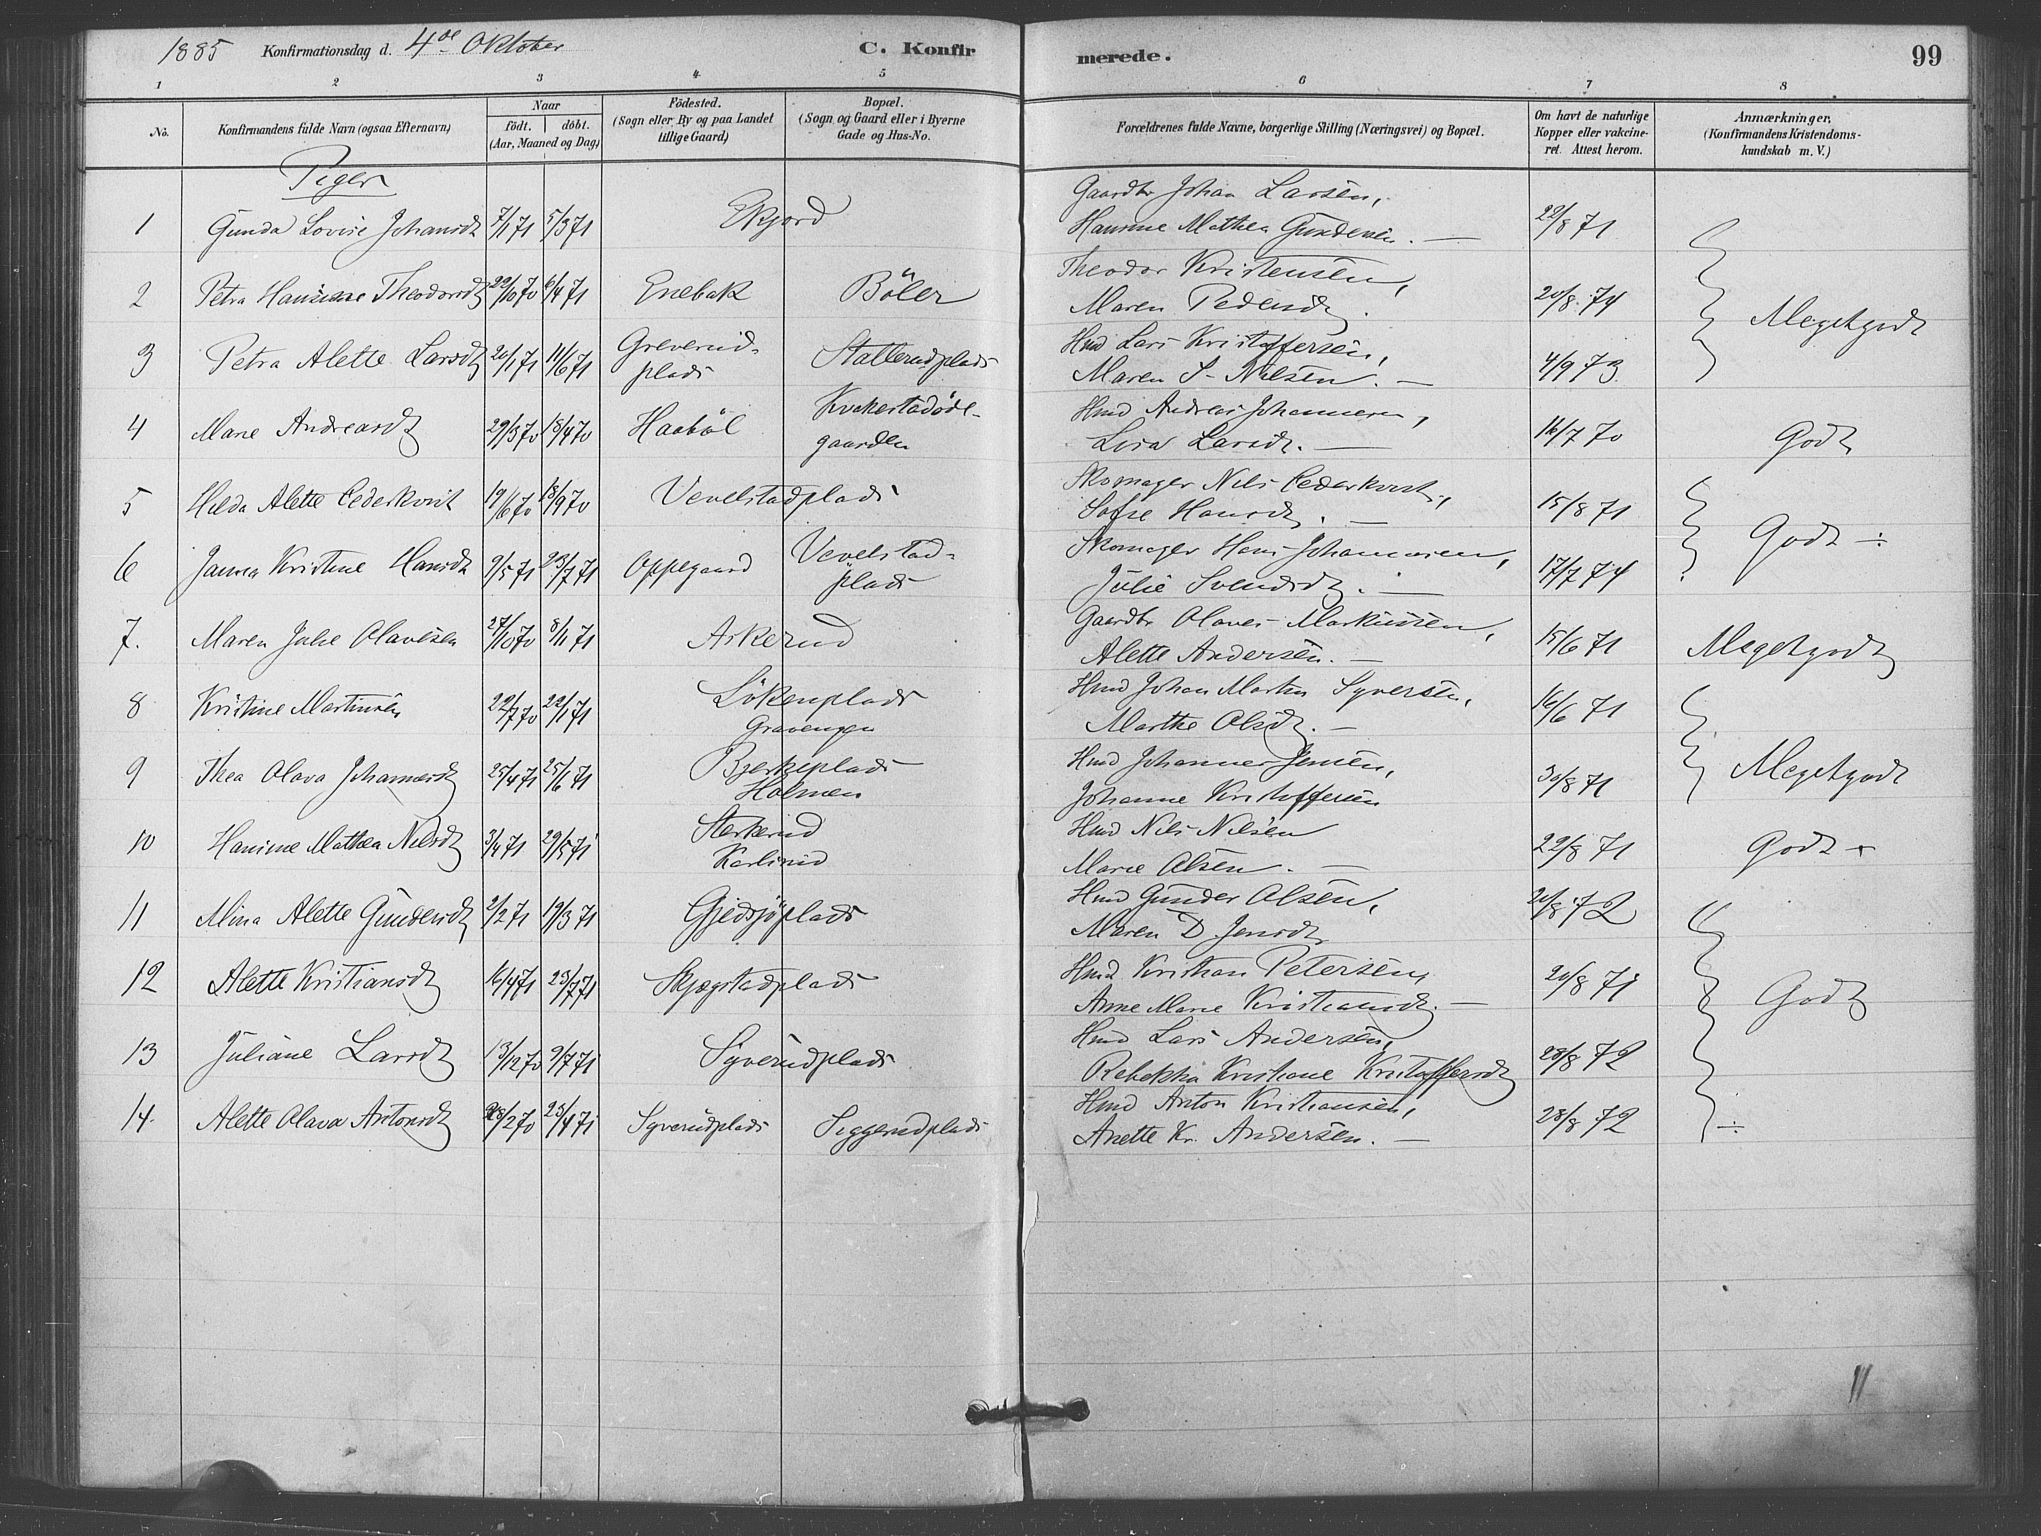 1885 Konfirmationsdag d. 4de Oktober C. Konfirmerede. 99
1 2 3 4 5 6 7 8
No. Konfirmandens fulde Navn (ogsaa Efternavn) Naar födt. döbt. (Aar, Maaned og Dag) Födested. (Sogn eller By og paa Landet tillige Gaard) Bopæl. (Sogn og Gaard eller i Byerne Gade og Hus-No. Forældrenes fulde Navne, borgerlige Stilling (Næringsvei) og Bopæl. Om havt de naturlige Kopper eller vakcineret. Attest herom. Anmærkninger, (Konfirmandens Kristendomskundskab m. V.)
Piger
Gaardbr Johan Larsen,
1 Gunda Lovise Johansdt 7/1 71 5/3 71 Ekjord Hanine Mathea Gundersen. — 22/8 71
Theodor Kristensen,
2 Petra Hanine Theodorsdt 22/10 70 6/4 71 Enebak Böler Maren Pedersdt. 20/8 74 Megetgodt
3 Petra Alette Larsdt 20/1 71 11/6 71 Greverud- Stallerudplads Hmd Lars Kristoffersen,
plads Maren S. Nilsen. — 4/9 73
4 Marie Andreasdt 29/3 70 18/4 70 Haaböl Kvakestadöde- Hmd Andreas Johannesen,
gaarden Lova Larsdt. — 16/7 70 Godt
5 Hilda Alette Cederkvist 19/6 70 18/9 70 Vevelstadplads Skomager Nils Cederkvist,
Sofie Hansdt. — 15/8 71
6 Janna Kristine Hansdt 9/5 71 23/7 71 Oppegaard Vevelstad- Skomager Hans Johannesen, Godt ÷
plads Julie Svendsdt. — 17/7 74
7. Maren Julie Olavesen 27/10 70 8/1 71 Askerud Gaardbr Olaves Markussen,
Alette Andersen. — 15/6 71 Megetgodt
8 Kristine Martinsen 22/7 70 22/1 71 Lökenplads Hmd Johan Martin Syversen,
Gravengen Marthe Olsdt. — 16/6 71
9 Thea Olava Johannesdt 25/4 71 25/6 71 Bjerkeplads Hmd Johannes Jensen, Megetgodt
Holmen Johanne Kristoffersen 30/8 71
10 Hanine Mathea Nilsdt 3/4 71 29/5 71 Sterkerud Hmd Nils Nilsen
Karlsrud Marie Olsen. — 22/8 71 Godt
11 Mina Alette Gundersdt 2/2 71 19/3 71 Gjedsjöplads Hmd Gunder Olsen, 20/8 72
Maren D. Jensdt
12 Alette Kristiansdt 16/4 71 23/7 71 Skjægstadplads Hmd Kristian Petersen, 20/8 71
Anne Marie Kristiansdt. — Godt
13 Juliane Larsdt 13/12 70 9/7 71 Syverudplads Hmd Lars Andersen,
Rebekka Kristiane Kristoffersdt 28/8 72
14. Alette Olava Antonsdt 28/2 70 23/4 71 Syverudplads Siggerudplads Hmd Anton Kristiansen,
Anette Kr. Andersen. — 28/8 72 ÷